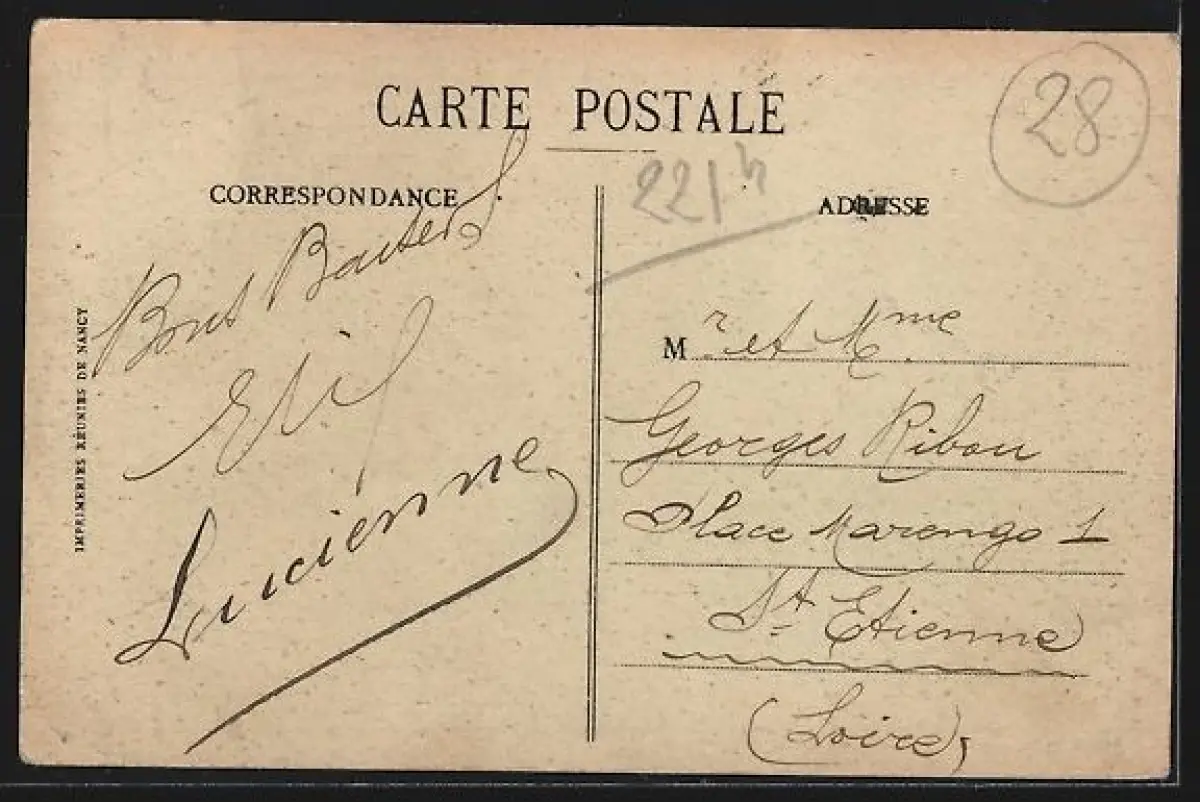 CARTE POSTALE
28
221h
CORRESPONDANCE
ADRESSE
Bons Baisers
Lucienne
IMPRIMERIES RÉUNIES DE NANCY
Mr et Mme
Georges Ribou
Place Marengo 1
St Etienne
(Loire)